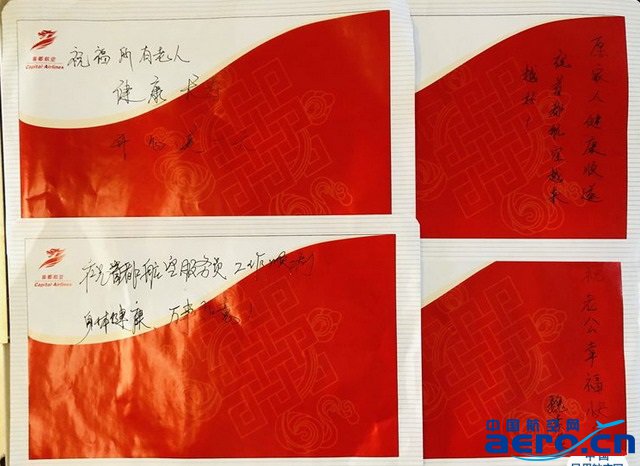 首都航空
Capital Airlines
祝福所有老人
健康长寿
开心每一天
愿家人健康顺遂
在首都航空越来
越好！
首都航空
Capital Airlines
祝首都航空服务员工作顺利
身体健康、万事如意！
祝老公幸福快
中国航空网
aero.cn